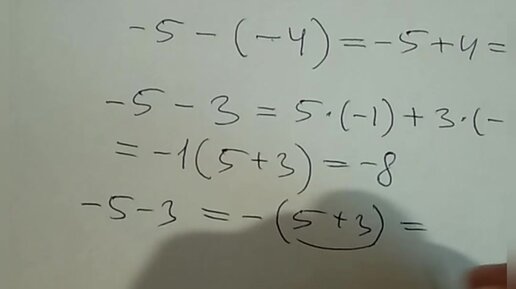 -5-(-4)=-5+4=
-5-3=5·(-1)+3·(-
=-1(5+3)=-8
-5-3=-(5+3)=